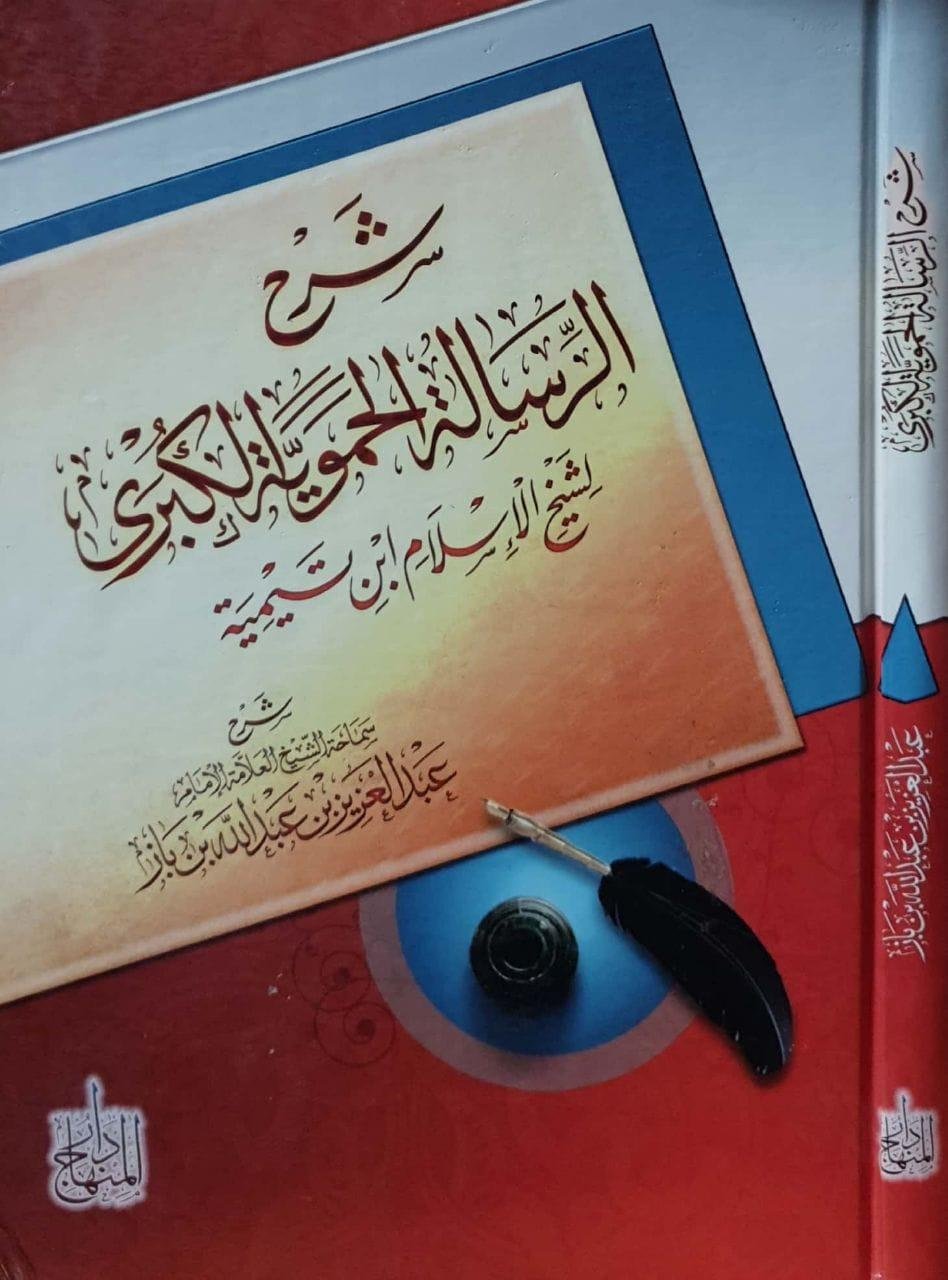 شرح
الرسالة الحموية الكبرى
لشيخ الإسلام ابن تيمية
شرح
سماحة الشيخ العلامة الإمام
عبد العزيز بن عبد الله بن باز
دار المنهاج
شرح الرسالة الحموية الكبرى
عبد العزيز بن عبد الله بن باز
دار المنهاج